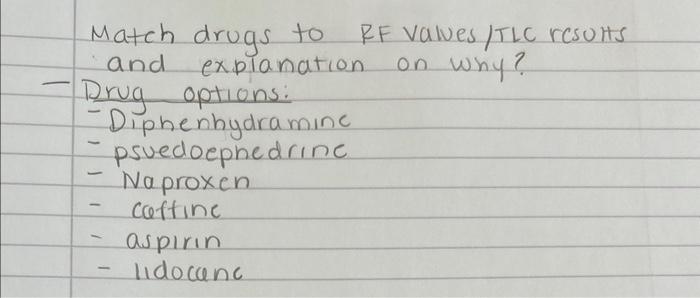 Match drugs to RF values/TLC results
and explanation on why?
- Drug options:
- Diphenhydramine
- psuedoephedrine
- Naproxen
- caffine
- aspirin
- lidocane